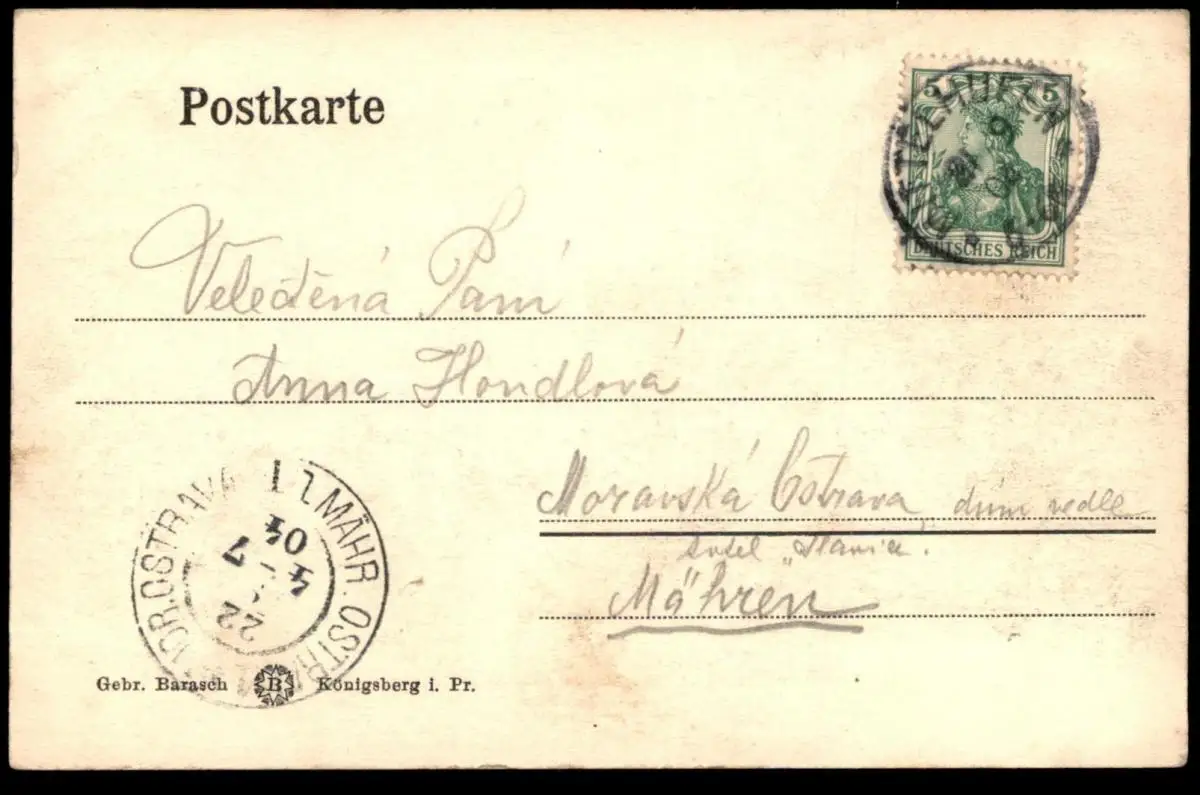 Postkarte
5 5
DEUTSCHES REICH
Velectěná Paní
Anna Hondlová
Moravská Ostrava, dům vedle
hotel „Slavia".
Mähren
MÄHR. OSTRAU
MOR. OSTRAVA 1
22 7 04
Gebr. Barasch B Königsberg i. Pr.